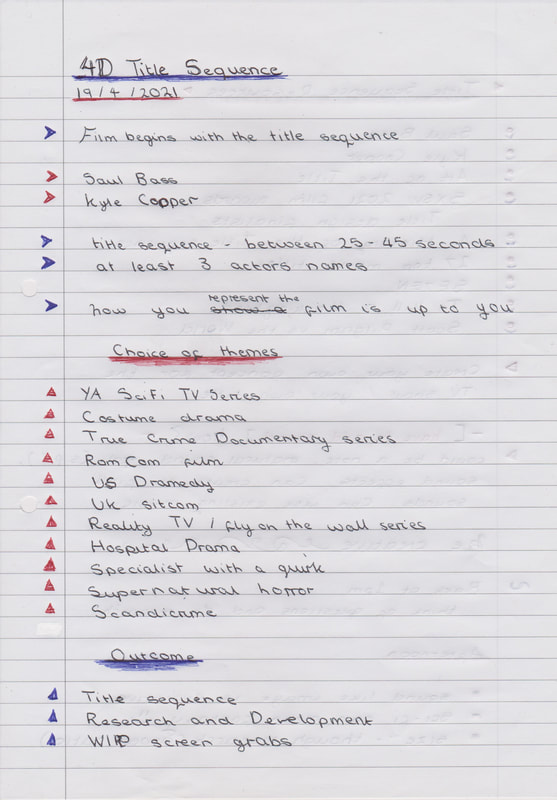 4D Title Sequence
19/4/2021
Film begins with the title sequence
Saul Bass
Kyle Copper
title sequence - between 25-45 seconds
at least 3 actors names
represent the
how you show a film is up to you
Choice of themes
YA SciFi TV Series
Costume drama
True Crime Documentary series
Rom Com film
US Dramedy
UK sitcom
Reality TV / fly on the wall series
Hospital Drama
Specialist with a quirk
Supernatural horror
Scandicrime
Outcome
Title sequence
Research and Development
WIP screen grabs